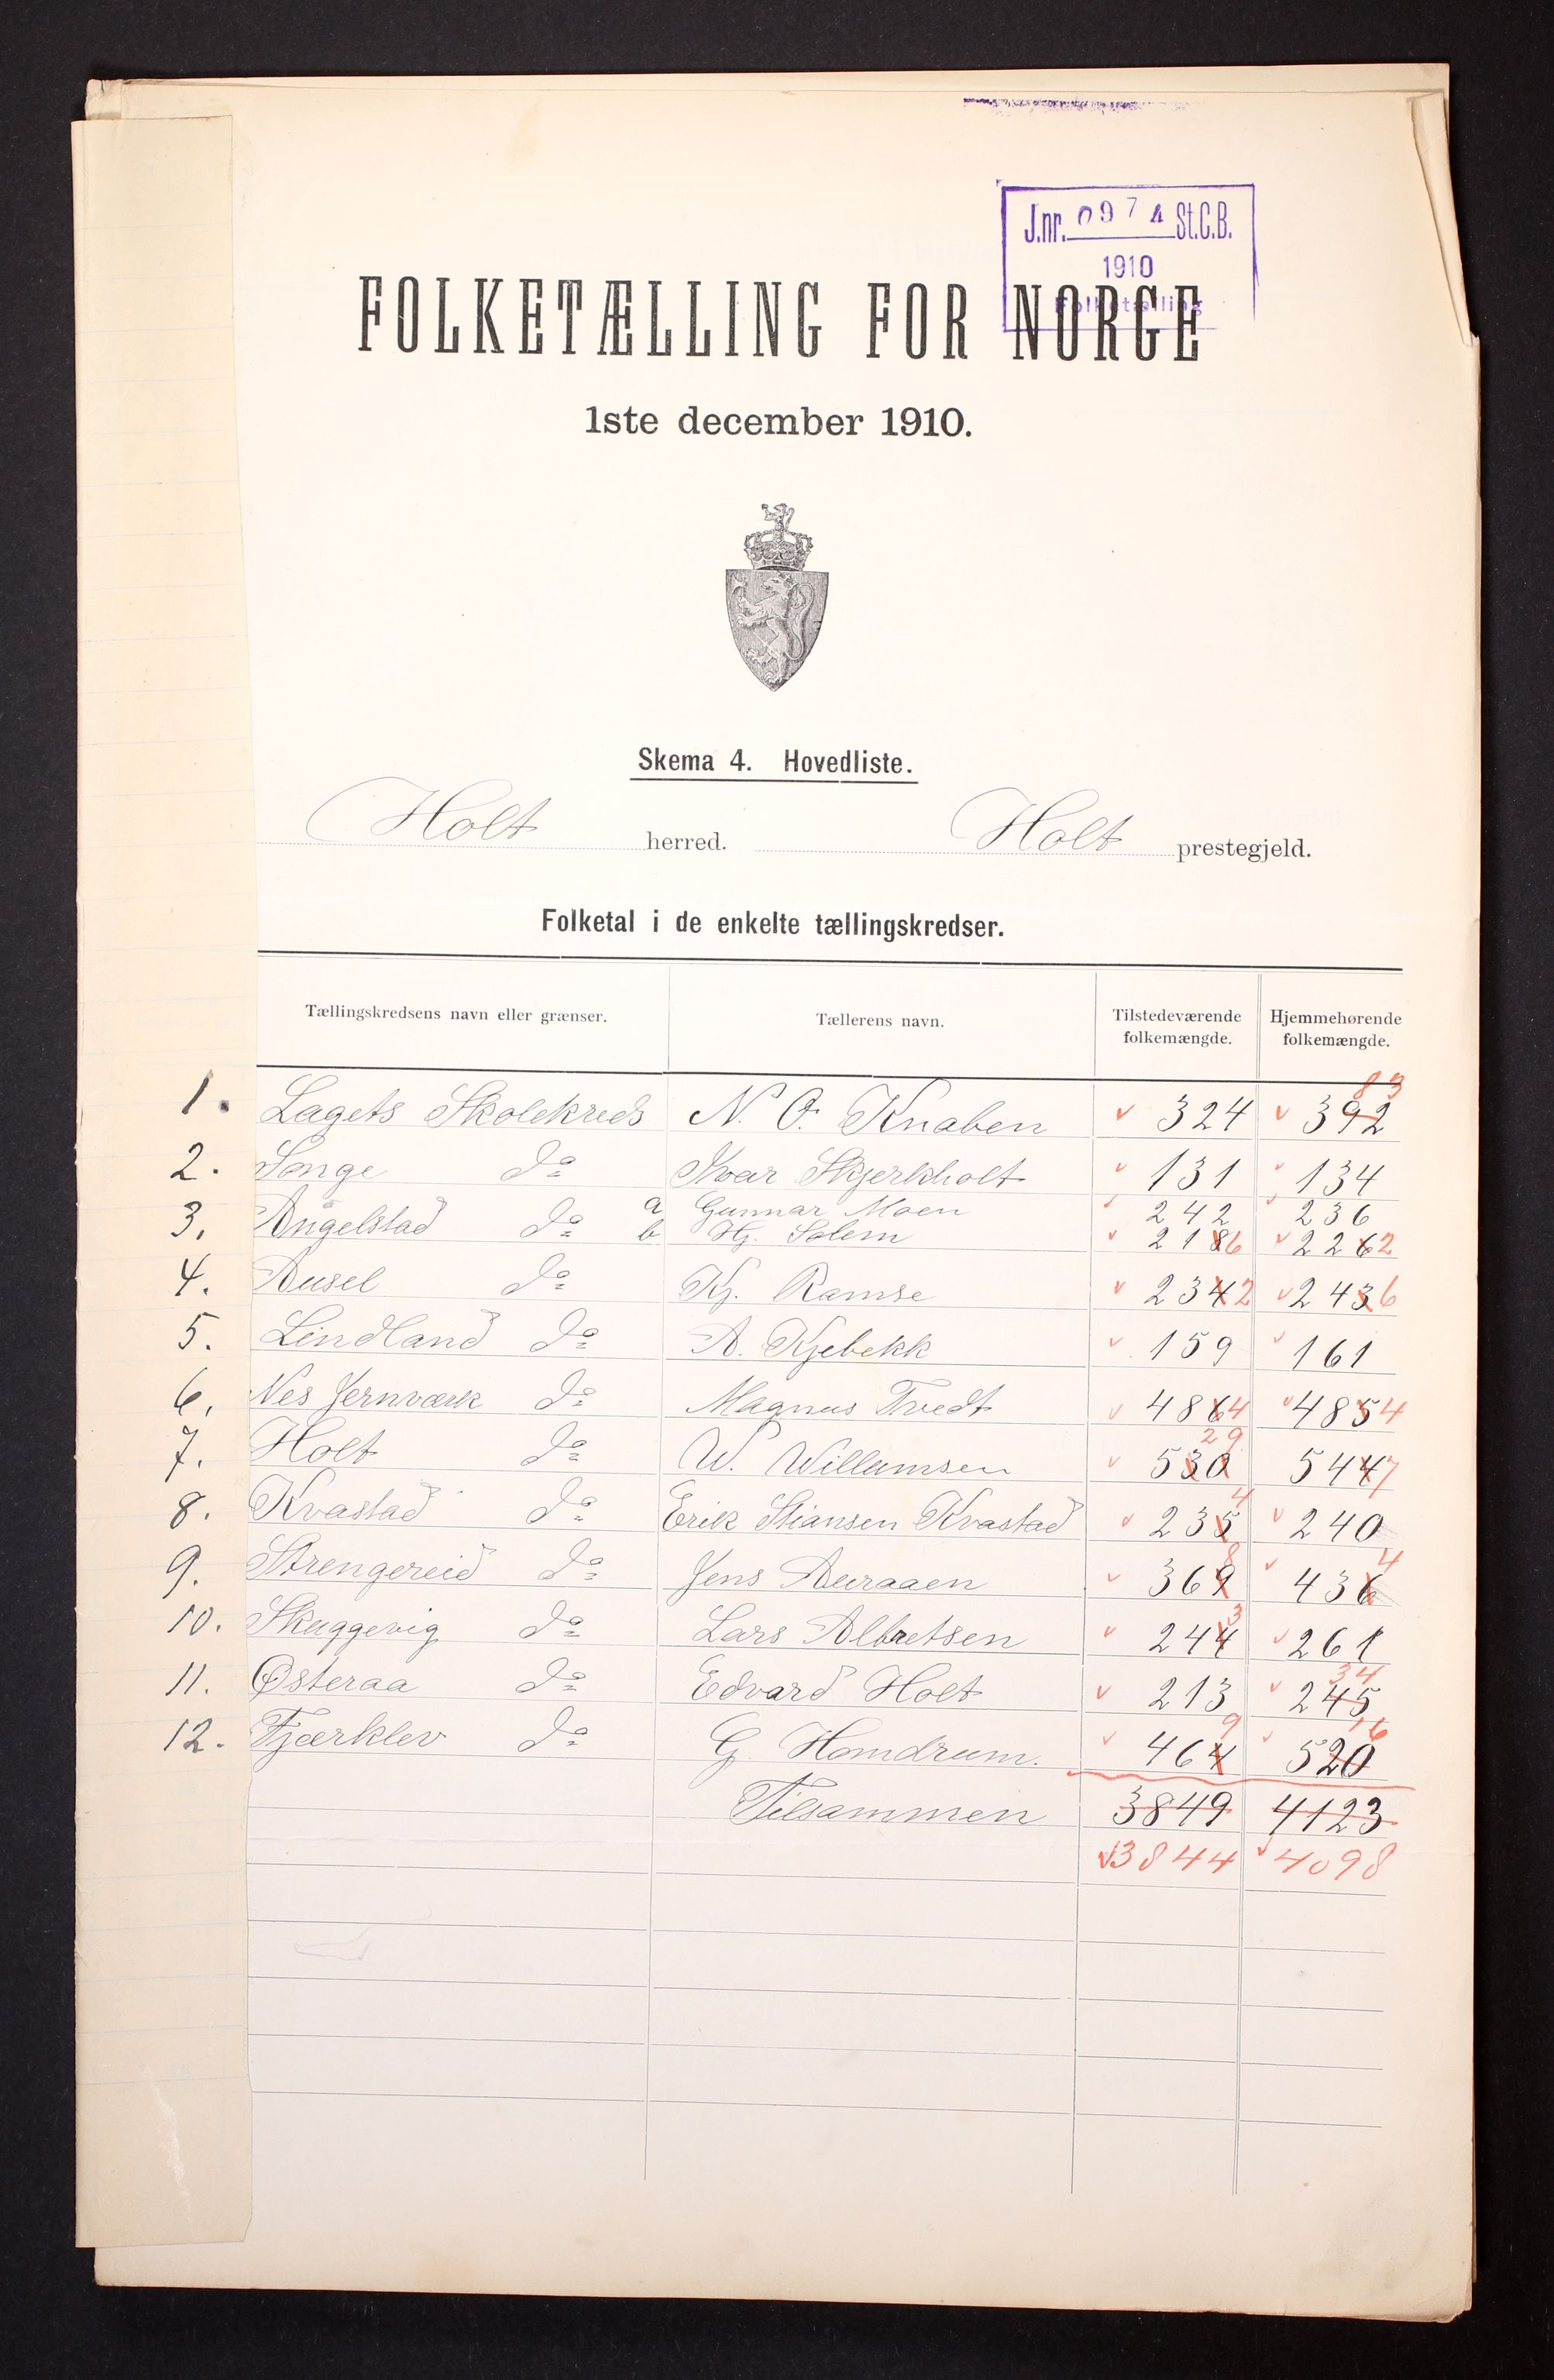 J.nr. 0974 St.C.B.
1910
Folketælling
FOLKETÆLLING FOR NORGE
1ste december 1910.
Skema 4. Hovedliste.
Holt herred. Holt prestegjeld.
Folketal i de enkelte tællingskredser.
Tællingskredsens navn eller grænser. Tællerens navn. Tilstedeværende folkemængde. Hjemmehørende folkemængde.
83
1. Lagets Skolekreds N. O. Knaben 324 392
2. Songe do Ivar Skjerkholt 131 134
3. Angelstad do a Gunnar Moen 242 236
b Hj. Solem 2186 2262
4. Ausel do Kj. Ramse 2342 2436
5. Lindland do A. Kjebekk 159 161
6. Nes Jernværk do Magnus Tvedt 4864 4854
29
7. Holt do W. Willumsen 530 5447
4
8. Kvastad do Erik Stiansen Kvastad 235 240
8 4
9. Strengereid do Jens Auraaen 369 436
3
10. Skuggevig do Lars Albretsen 244 261
34
11. Østeraa do Edvard Holt 213 245
9 16
12. Fjærklev do G. Homdrum. 464 520
Tilsammen 3849 4123
3844 4098